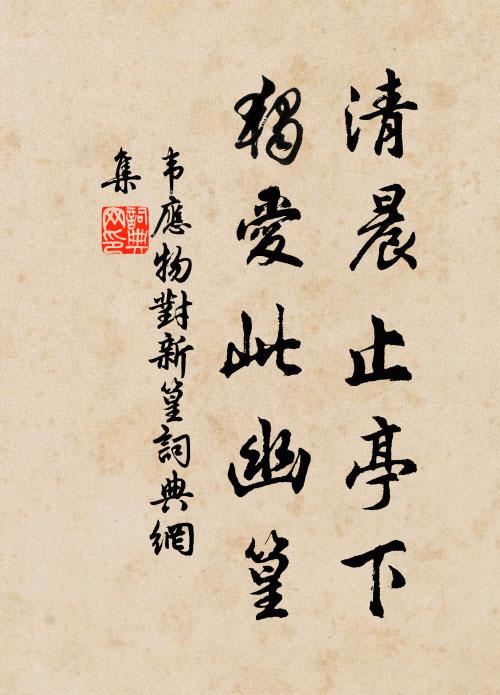 清晨止亭下
獨愛此幽篁
韦應物對新篁詞典網
集
詞典網印